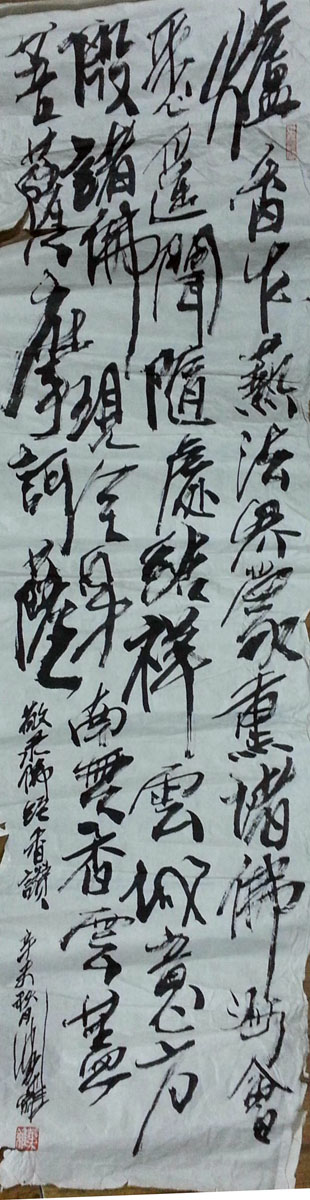 爐香乍爇法界蒙熏諸佛海會
悉遥聞隨處結祥雲誠意方
殷諸佛現全身南無香雲蓋
菩薩摩訶薩
敬录佛經香讚
辛未